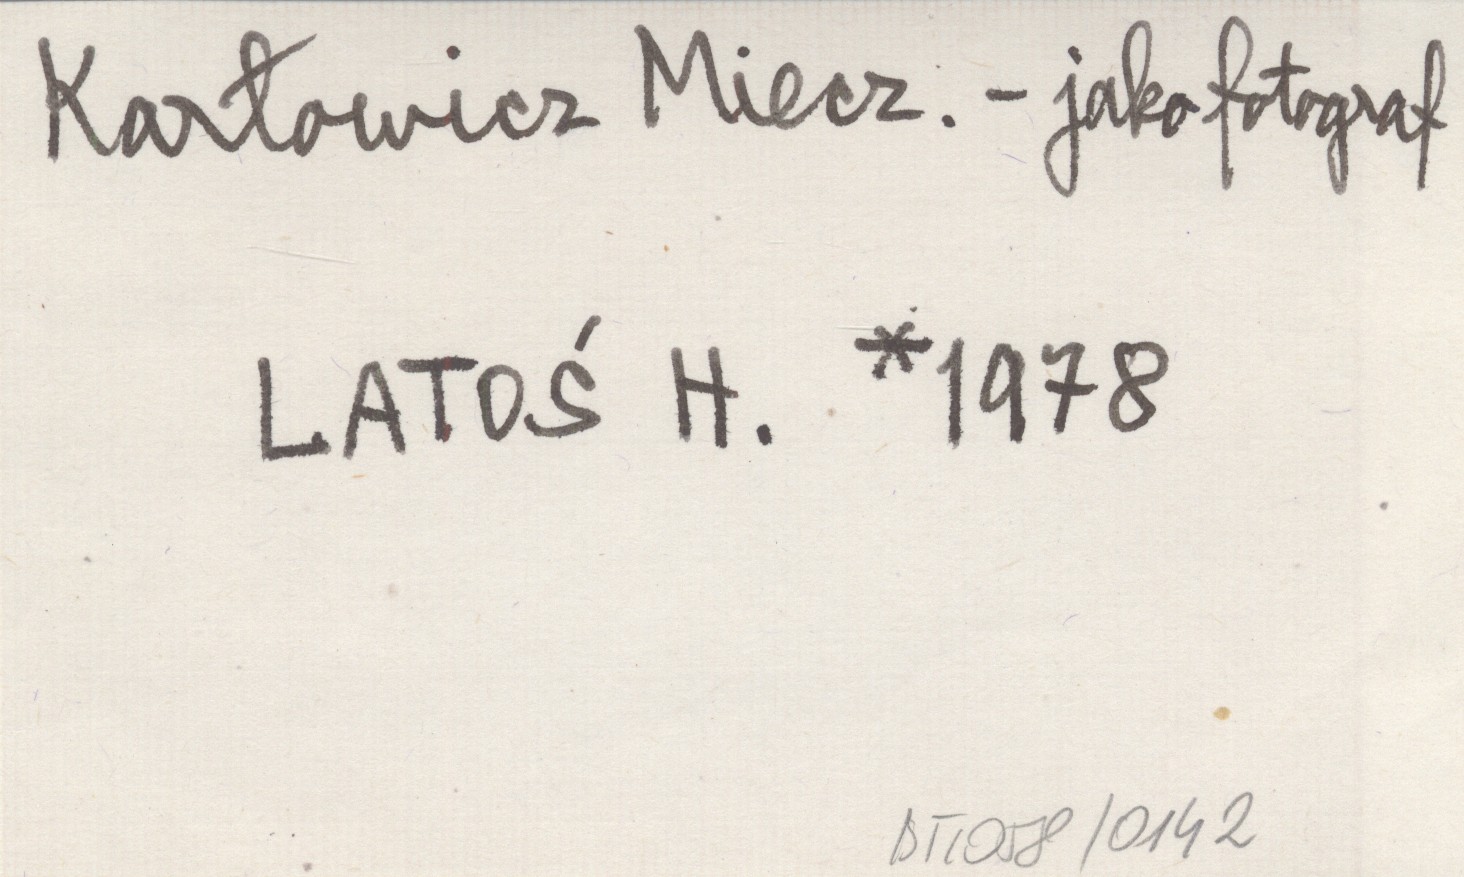 Karłowicz Miecz. - jako fotograf
LATOŚ H. *1978
/0142